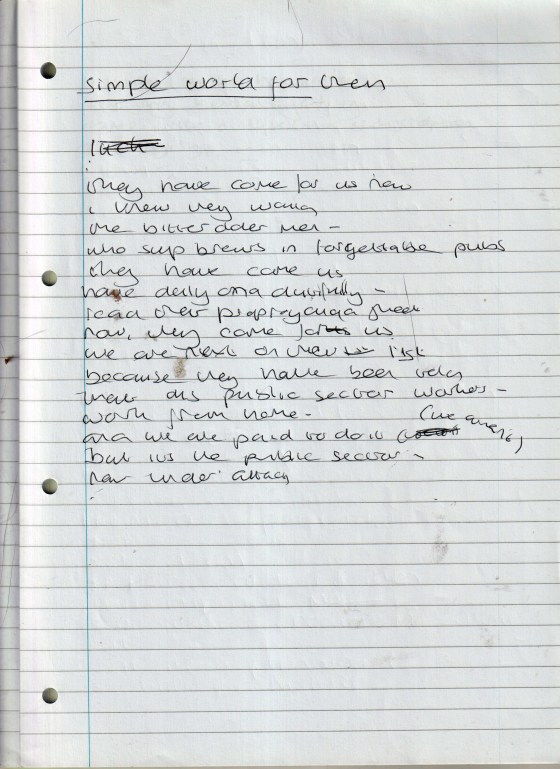 simple world for them
they have come for us now
i knew they would
the bitter older men -
who sup brews in forgettable pubs
they have come us
have daily and dutifully -
read their propaganda sheet
now, they come for us
we are next on their list
because they have been told
that us public sector workers -
work from home -
and we are paid to do it
but its the public sector -
now under attack